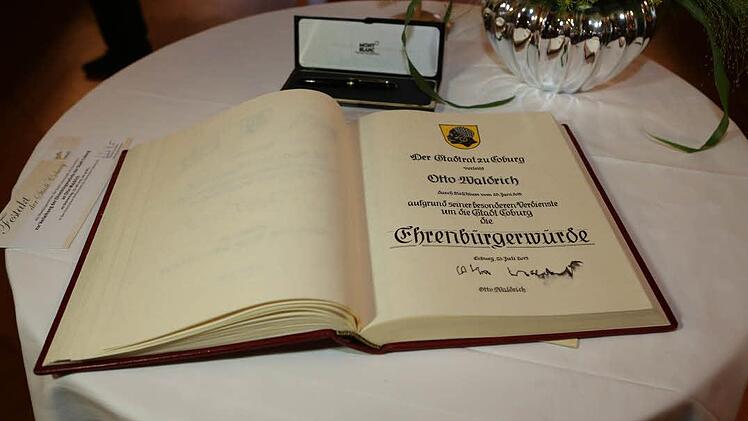 MONT
BLANC
Der Stadtrat zu Coburg
verleiht
Otto Waldrich
durch Beschluss vom 25. Juni 2015
aufgrund seiner besonderen Verdienste
um die Stadt Coburg
die
Ehrenbürgerwürde
Coburg, 23. Juli 2015
Otto Waldrich
Festakt
der Stadt Coburg